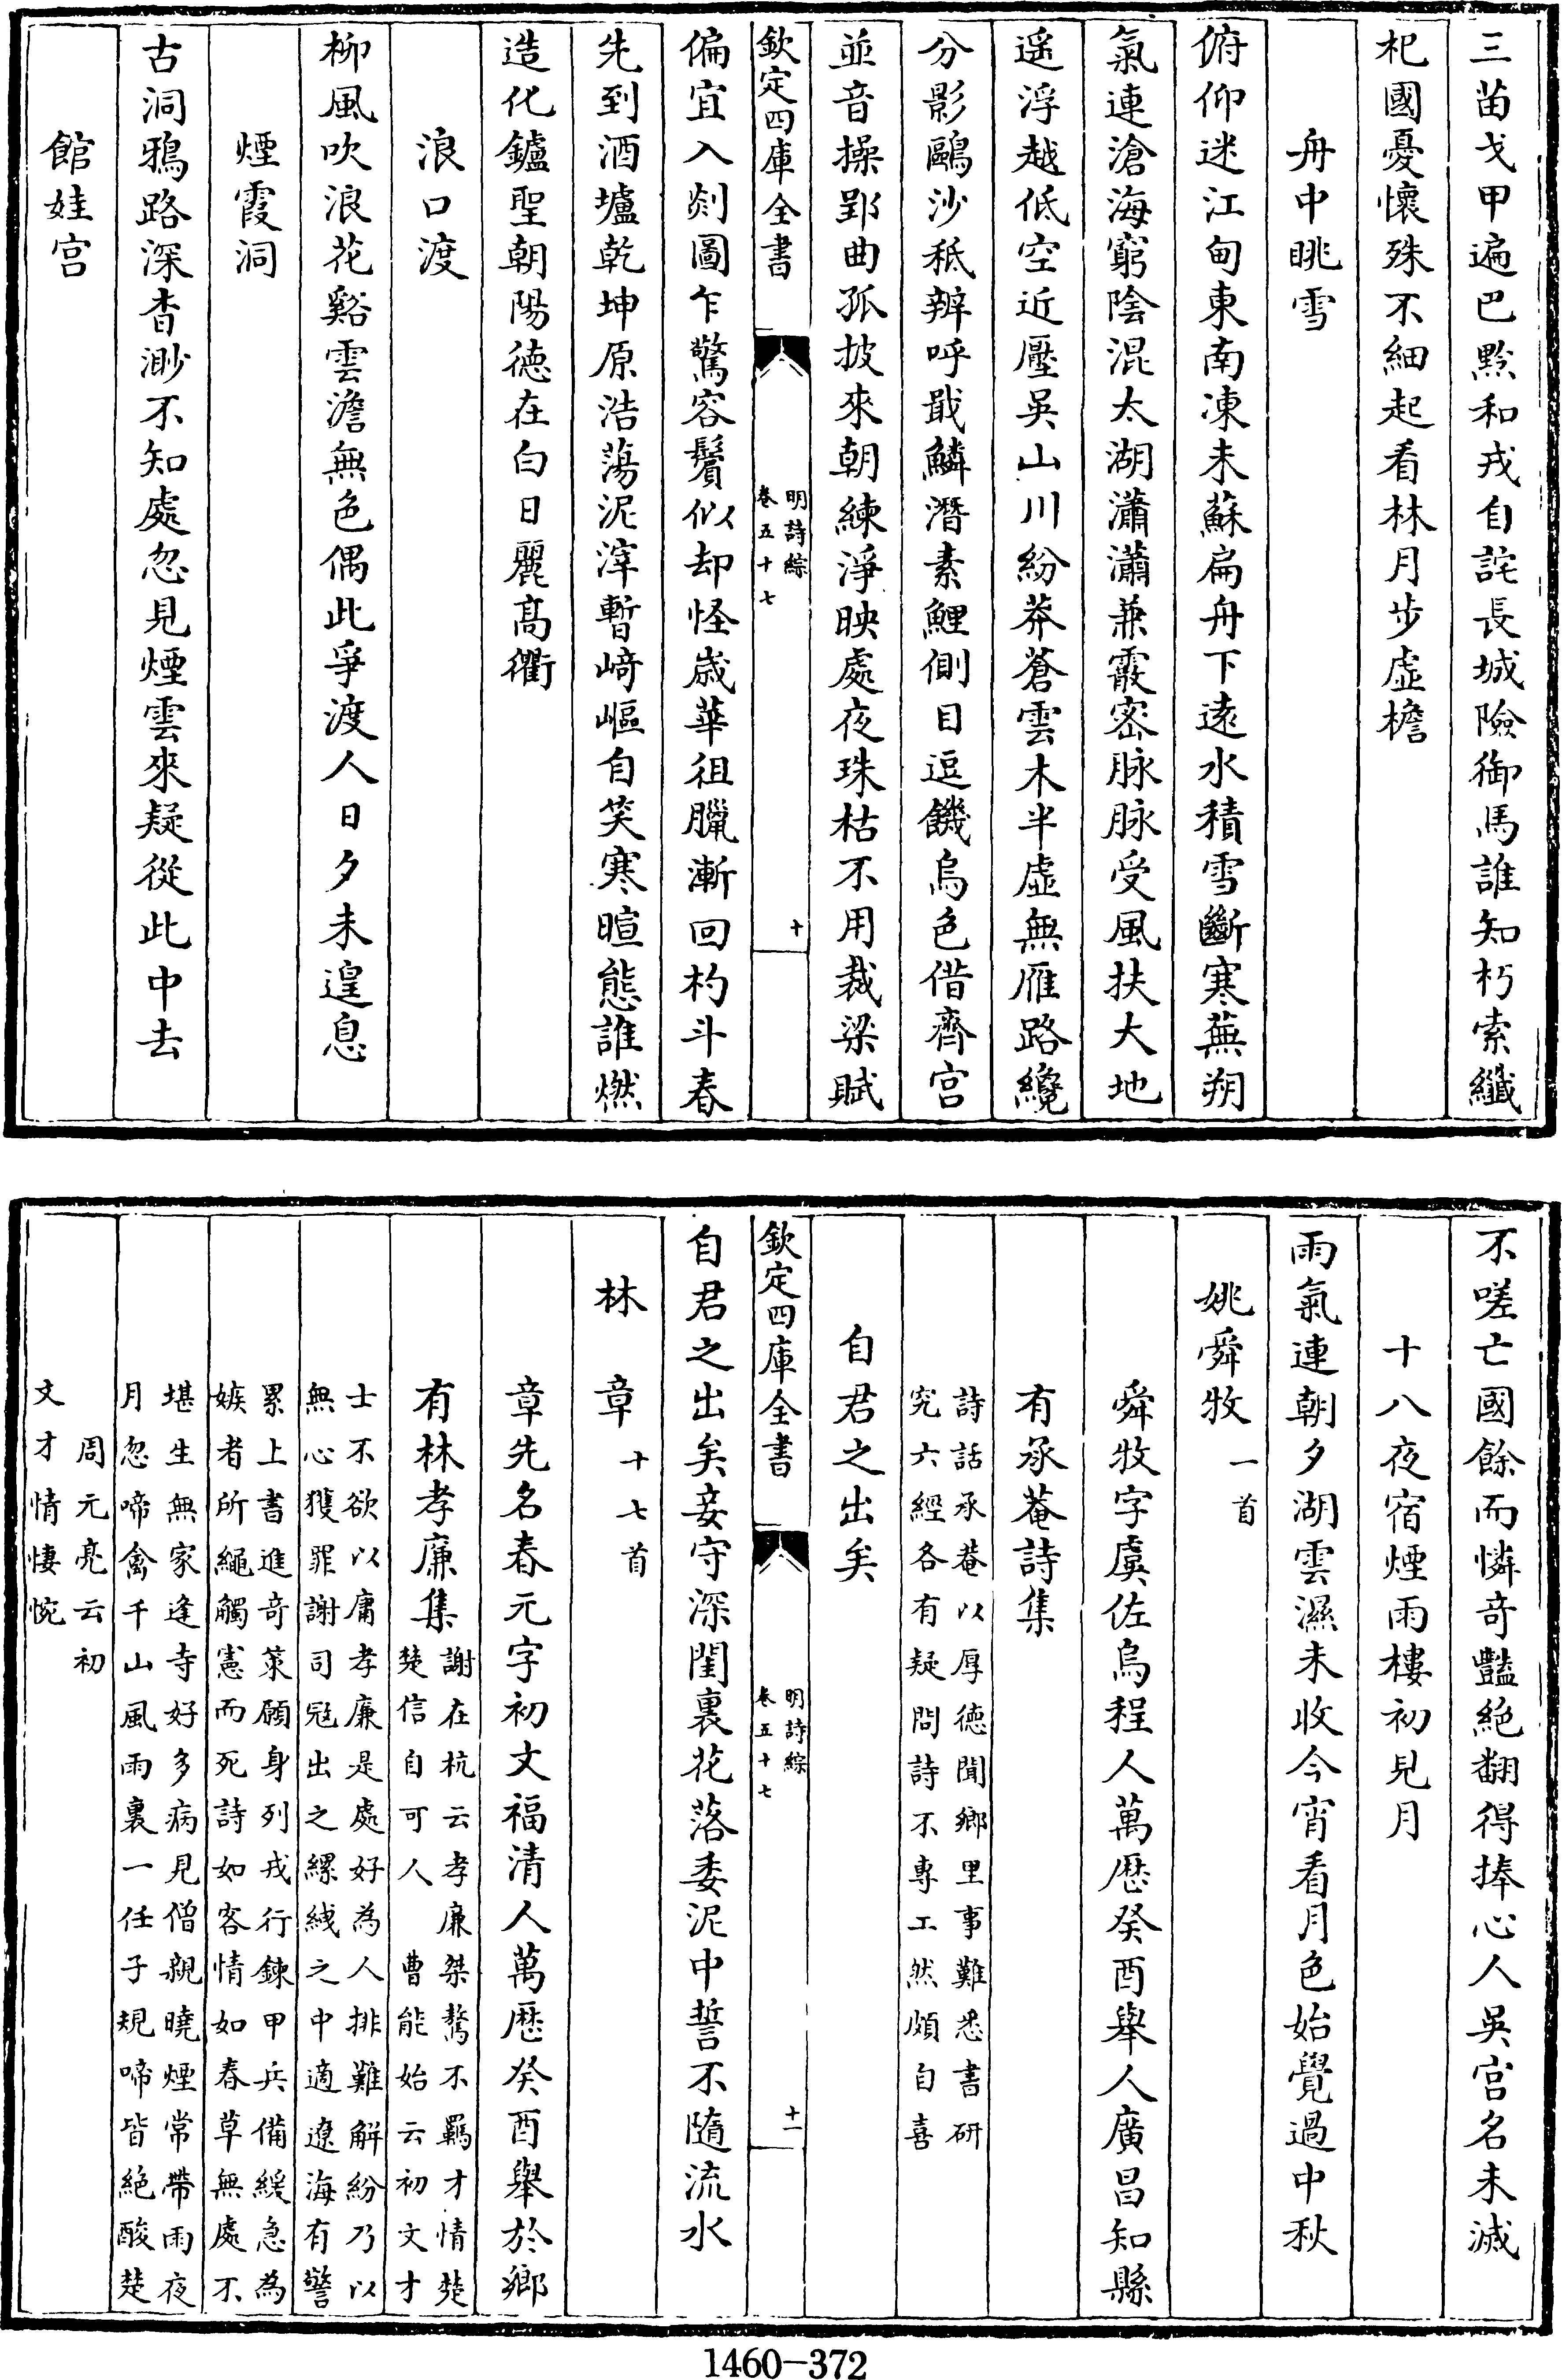 三苗戈甲遍巴黔和戎自詫長城險御馬誰知朽索纖
杞國憂懷殊不細起看林月步虛檐
舟中眺雪
俯仰迷江甸東南凍未蘇扁舟下遠水積雪斷寒蕪朔
氣連滄海窮陰混太湖瀟瀟兼霰密脉脉受風扶大地
遥浮越低空近壓吳山川紛莽蒼雲木半虛無雁路纔
分影鷗沙秪辨呼戢鱗潛素鯉側目逗饑烏色借齊宫
並音操郢曲孤披來朝練淨映處夜珠枯不用裁梁賦
欽定四庫全書
明詩綜
卷五十七
十
偏宜入剡圖乍驚容鬢似却怪歲華徂臘漸回杓斗春
先到酒壚乾坤原浩蕩泥滓暫崎嶇自笑寒暄態誰燃
造化鑪聖朝陽德在白日麗髙衢
浪口渡
柳風吹浪花谿雲澹無色偶此爭渡人日夕未遑息
煙霞洞
古洞鴉路深杳渺不知處忽見煙雲來疑從此中去
館娃宫
不嗟亡國餘而憐奇豔絶翻得捧心人吳宫名未滅
十八夜宿煙雨樓初見月
雨氣連朝夕湖雲濕未收今宵看月色始覺過中秋
姚舜牧一首
舜牧字虞佐烏程人萬厯癸酉舉人廣昌知縣
有承菴詩集
詩話承菴以厚德聞鄉里事難悉書研
究六經各有疑問詩不專工然頗自喜
自君之出矣
欽定四庫全書
明詩綜
卷五十七
十一
自君之出矣妾守深閨裏花落委泥中誓不隨流水
林章十七首
章先名春元字初文福清人萬厯癸酉舉於鄉
有林孝廉集
謝在杭云孝廉桀驁不羈才情楚
楚信自可人 曹能始云初文才
士不欲以庸孝廉是處好為人排難解紛乃以
無心獲罪謝司寇出之縲紲之中適遼海有警
累上書進奇策願身列戎行鍊甲兵備緩急為
嫉者所繩觸憲而死詩如客情如春草無處不
堪生無家逢寺好多病見僧親曉煙常帶雨夜
月忽啼禽千山風雨裏一任子規啼皆絶酸楚
周元亮云初
文才情悽惋
1460-372